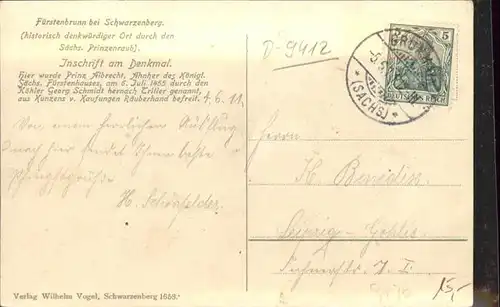 Fürstenbrunn bei Schwarzenberg.
(historisch denkwürdiger Ort durch den
Sächs. Prinzenraub).
Inschrift am Denkmal.
Hier wurde Prinz Albrecht, Ahnherr des Königl.
Sächs. Fürstenhauses, am 8. Juli 1455 durch den
Köhler Georg Schmidt hernach Triller genannt,
aus Kunzens v. Kaufungen Räuberhand befreit.
4. 6. 11.
Von einem herrlichen Ausflug
nach hier sendet Ihnen beste
Pfingstgrüße
H. Schönfelder.
D-9412
5
(SACHS)
DEUTSCHES REICH
Herrn
H. Benedix
Leipzig-Gohlis
15,-
Verlag Wilhelm Vogel, Schwarzenberg 1658.